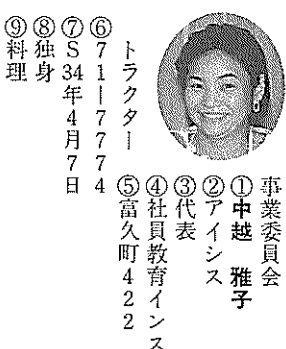 事業委員会
①中越 雅子
②アイシス
③代表
④社員教育インス
トラクター
⑤富久町422
⑥71ー7774
⑦S34年4月7日
⑧独身
⑨料理